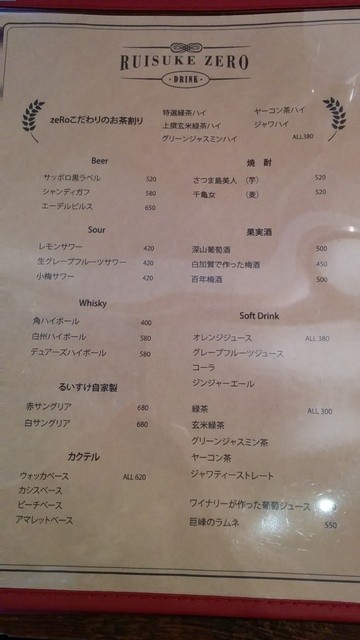 RUISUKE ZERO
DRINK
zeRoこだわりのお茶割り
特選緑茶ハイ
上撰玄米緑茶ハイ
グリーンジャスミンハイ
ヤーコン茶ハイ
ジャワハイ
ALL380
Beer
サッポロ黒ラベル 520
シャンディガフ 580
エーデルピルス 650
焼酎
さつま島美人 (芋) 520
千亀女 (麦) 520
Sour
レモンサワー 420
生グレープフルーツサワー 420
小梅サワー 420
果実酒
深山葡萄酒 500
白加賀で作った梅酒 450
百年梅酒 500
Whisky
角ハイボール 400
白州ハイボール 580
デュアーズハイボール 580
Soft Drink
オレンジジュース ALL 380
グレープフルーツジュース
コーラ
ジンジャーエール
るいすけ自家製
赤サングリア 680
白サングリア 680
緑茶 ALL 300
玄米緑茶
グリーンジャスミン茶
ヤーコン茶
ジャワティーストレート
カクテル
ウォッカベース ALL 620
カシスベース
ピーチベース
アマレットベース
ワイナリーが作った葡萄ジュース
巨峰のラムネ 550